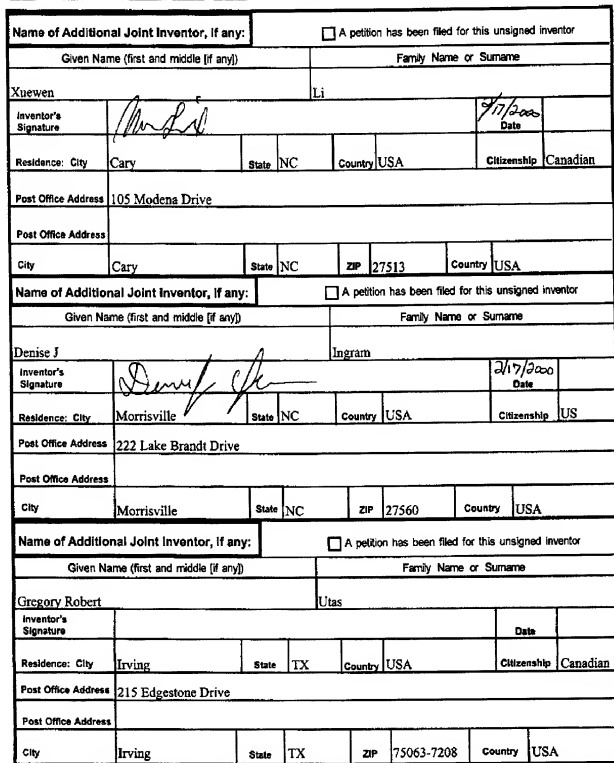 Name of Additional Joint Inventor, if any: A petition has been filed for this unsigned inventor
Given Name (first and middle [if any]) Family Name or Surname
Xuewen Li
Inventor's Signature 2/17/2000 Date
Residence: City Cary State NC Country USA Citizenship Canadian
Post Office Address 105 Modena Drive
Post Office Address
City Cary State NC ZIP 27513 Country USA
Name of Additional Joint Inventor, if any: A petition has been filed for this unsigned inventor
Given Name (first and middle [if any]) Family Name or Surname
Denise J Ingram
Inventor's Signature 2/17/2000 Date
Residence: City Morrisville State NC Country USA Citizenship US
Post Office Address 222 Lake Brandt Drive
Post Office Address
City Morrisville State NC ZIP 27560 Country USA
Name of Additional Joint Inventor, if any: A petition has been filed for this unsigned inventor
Given Name (first and middle [if any]) Family Name or Surname
Gregory Robert Utas
Inventor's Signature Date
Residence: City Irving State TX Country USA Citizenship Canadian
Post Office Address 215 Edgestone Drive
Post Office Address
City Irving State TX ZIP 75063-7208 Country USA